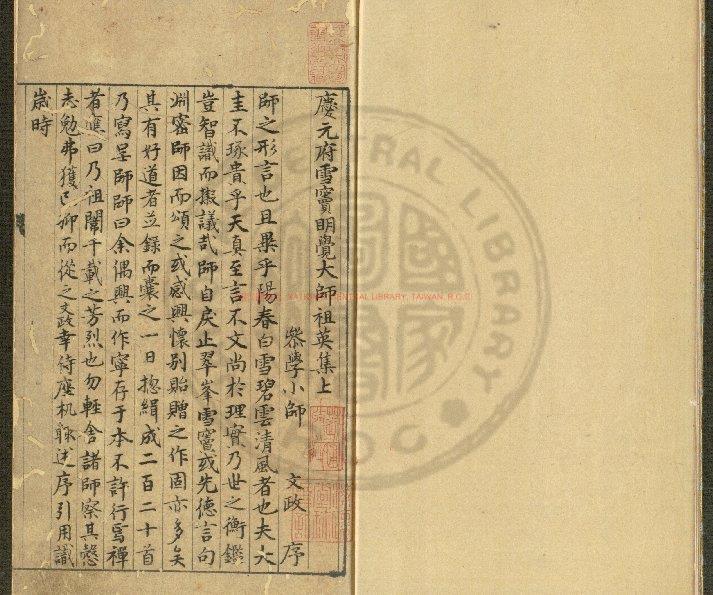 慶元府雪竇明覺大師祖英集上
叅學小師 文政 序
師之形言也且異乎陽春白雪碧雲清風者也夫大
圭不琢貴乎天真至言不文尚於理實乃世之衡鑑
豈智識而擬議哉師自戾止翠峯雪竇或先德言句
淵密師因而頌之或感興懷別貽贈之作固亦多矣
其有好道者並録而囊之一日揔緝成二百二十首
乃寫呈師師曰余偶興而作寧存于本不許行焉禪
者應曰乃祖闡千載之芳烈也勿輕舍諸師察其慤
志勉弗獲已仰而從之文政幸侍座机聊述序引用識
歲時
NATIONAL CENTRAL LIBRARY, TAIWAN, R.O.C
CENTRAL LIBRARY
ROC